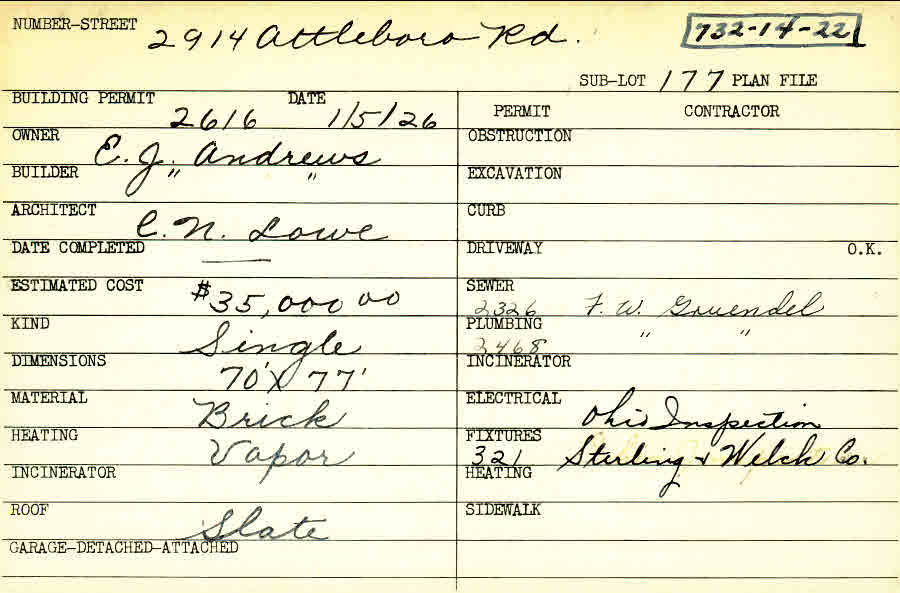 NUMBER-STREET 2914 Attleboro Rd. 732-14-22
SUB-LOT 177 PLAN FILE
BUILDING PERMIT 2616 DATE 1/5/26
OWNER E. J. Andrews
BUILDER " "
ARCHITECT C. N. Lowe
DATE COMPLETED —
ESTIMATED COST $35,000 00
KIND Single
DIMENSIONS 70' X 77'
MATERIAL Brick
HEATING Vapor
INCINERATOR
ROOF Slate
GARAGE-DETACHED-ATTACHED
PERMIT CONTRACTOR
OBSTRUCTION
EXCAVATION
CURB
DRIVEWAY O.K.
SEWER 2326 F. W. Gruendel
PLUMBING 2468 " "
INCINERATOR
ELECTRICAL Ohio Inspection
FIXTURES 321 Sterling & Welch Co.
HEATING
SIDEWALK